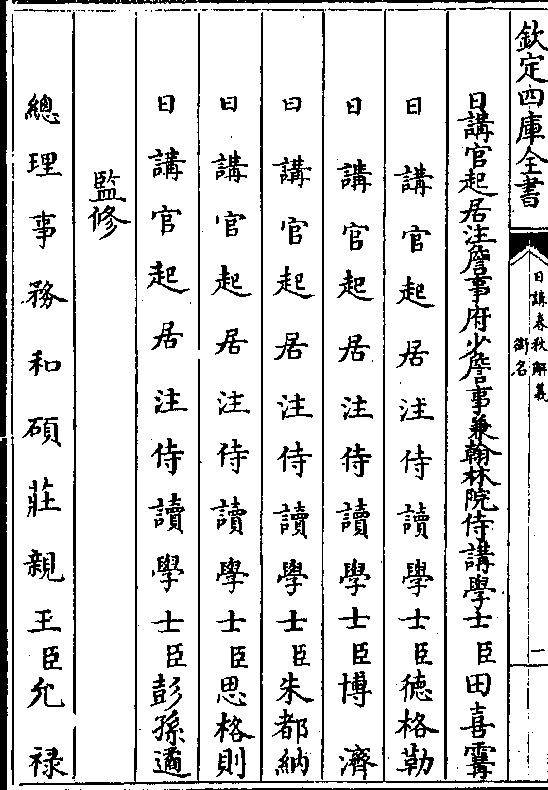 欽定四庫全書
日講春秋解義
銜名
二
日講官起居注詹事府少詹事兼翰林院侍講學士臣田喜霱
日講官起居注侍讀學士臣德格勒
日講官起居注侍讀學士臣博濟
日講官起居注侍讀學士臣朱都納
日講官起居注侍讀學士臣思格則
日講官起居注侍讀學士臣彭孫遹
監修
總理事務和碩莊親王臣允祿